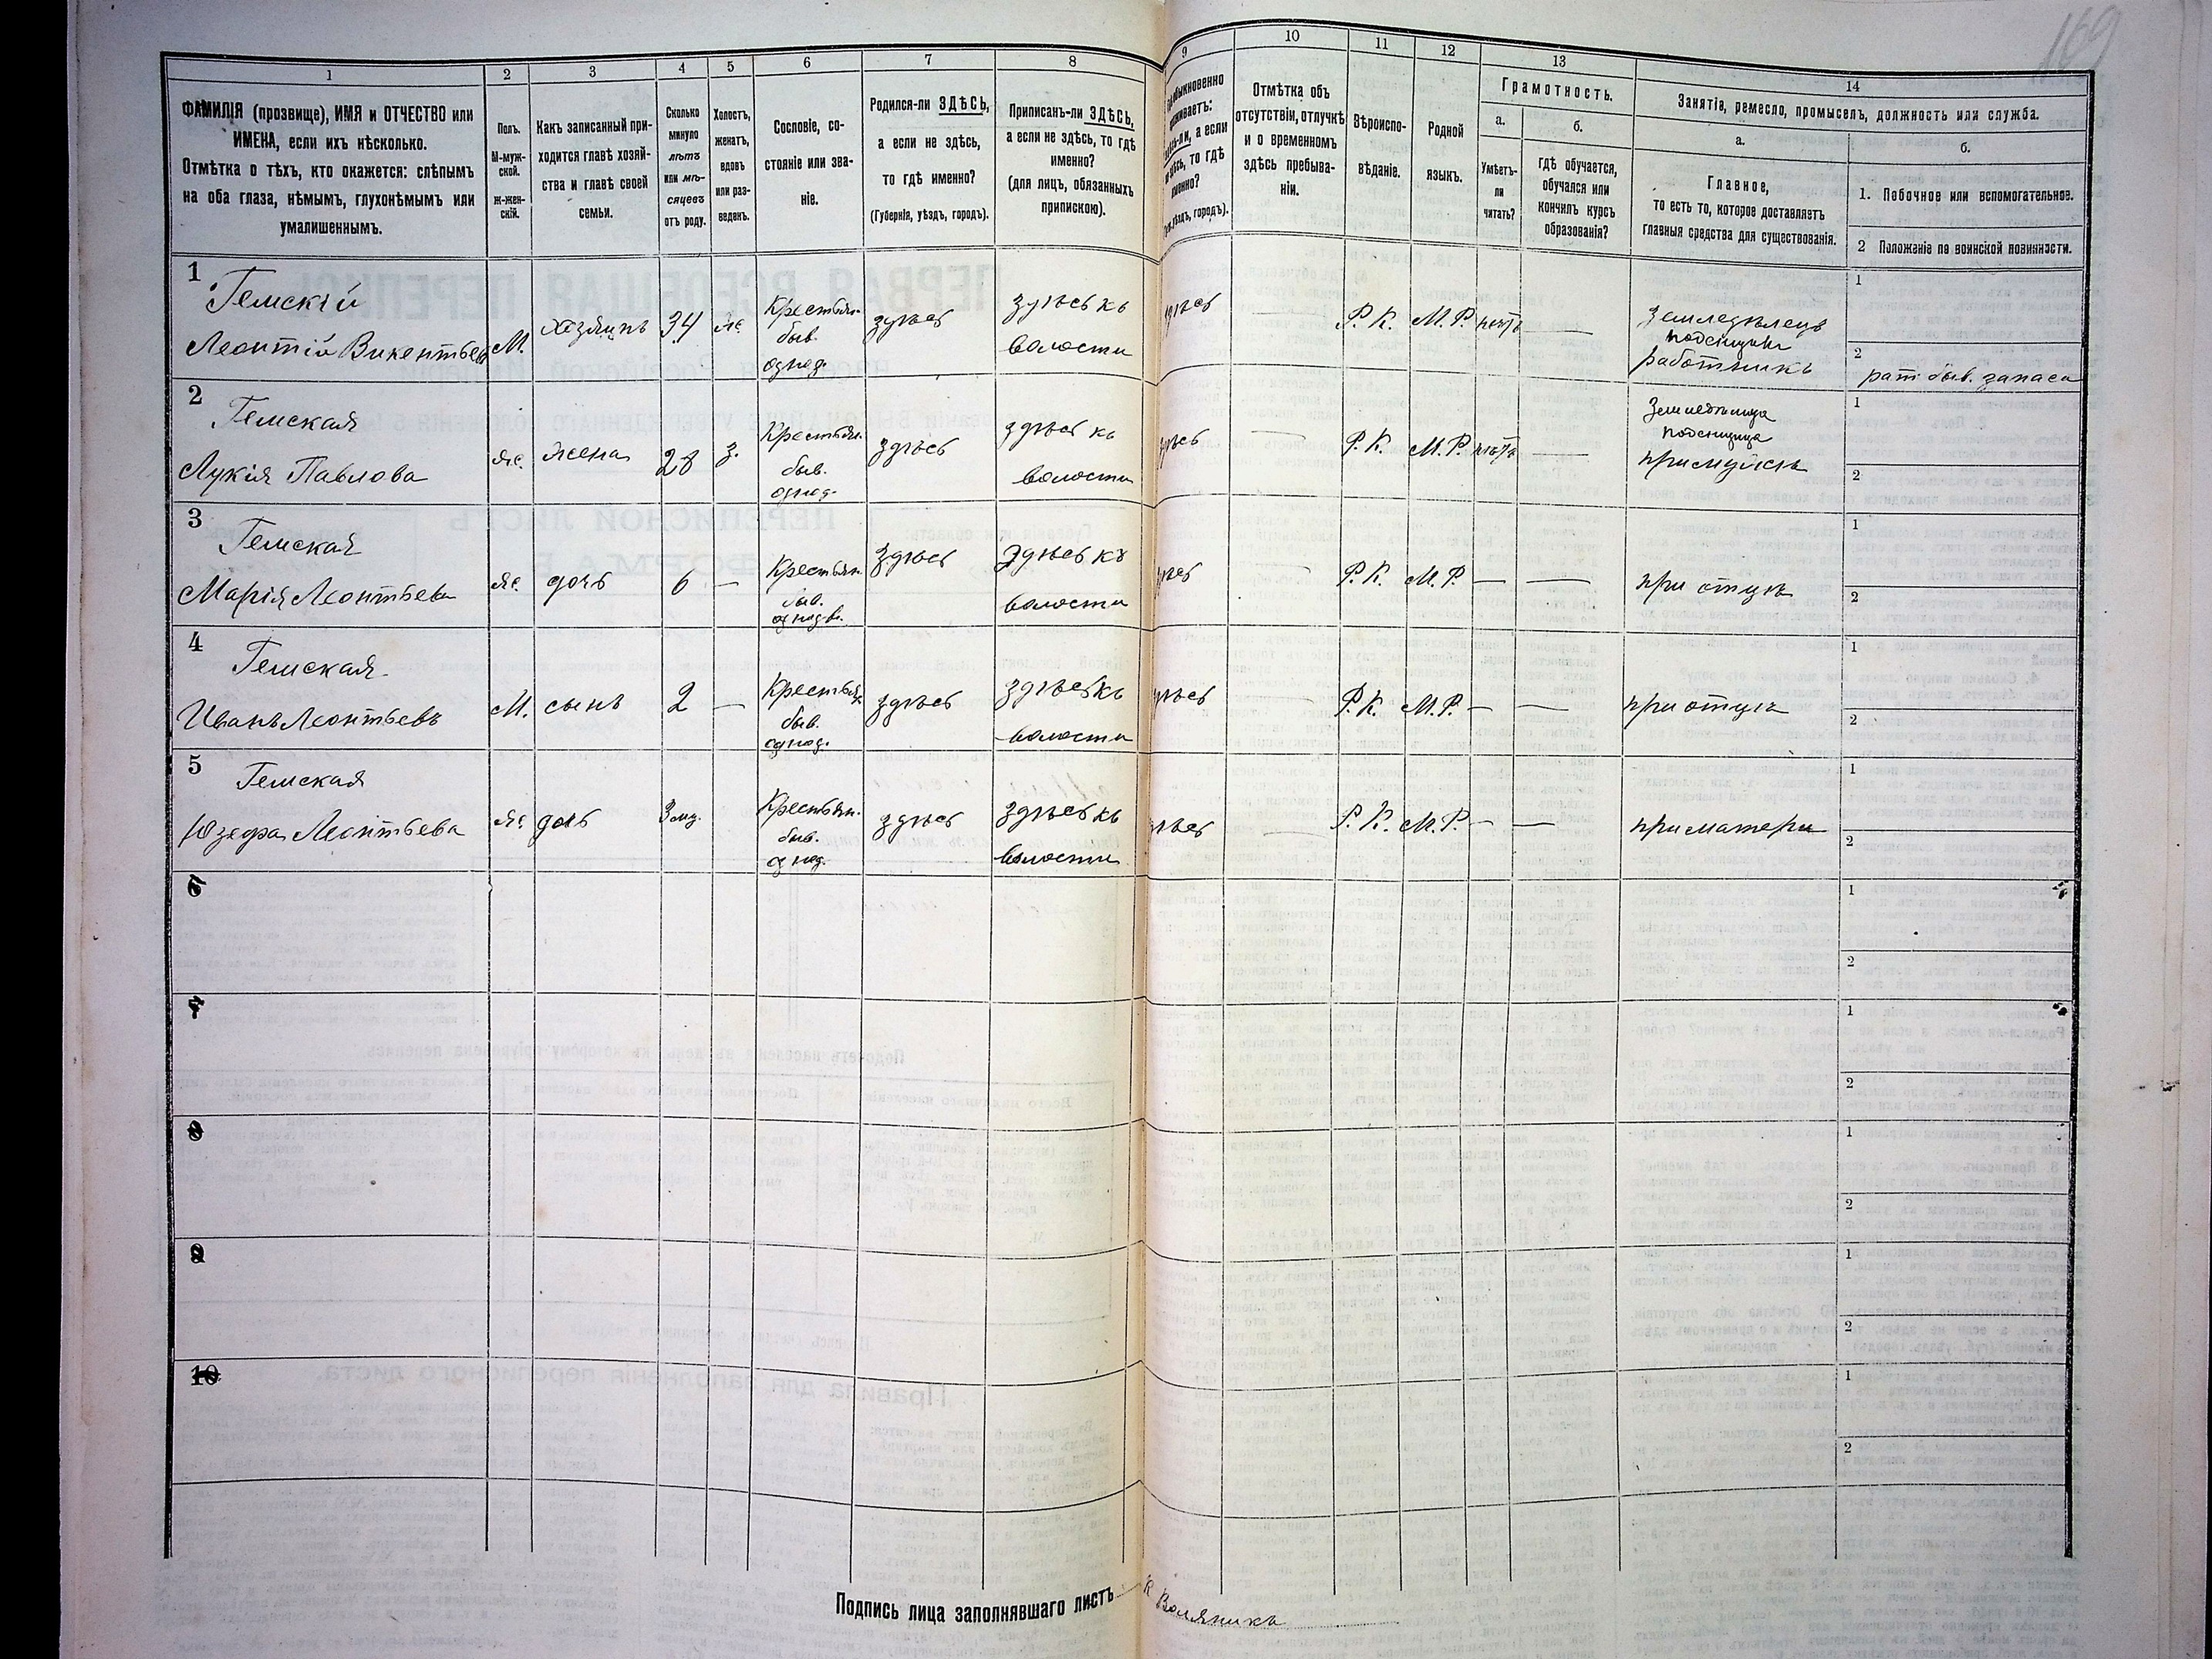 169
1
2
3
4
5
6
7
8
9
10
11
12
13
14
ФАМИЛІЯ (прозвище), ИМЯ и ОТЧЕСТВО или
ИМЕНА, если ихъ нѣсколько.
Отмѣтка о тѣхъ, кто окажется: слѣпымъ
на оба глаза, нѣмымъ, глухонѣмымъ или
умалишеннымъ.
Полъ.
М-муж-
ской.
Ж-жен-
скій.
Какъ записанный при-
ходится главѣ хозяй-
ства и главѣ своей
семьи.
Сколько
минуло
лѣтъ
или мѣ-
сяцевъ
отъ роду.
Холостъ,
женатъ,
вдовъ
или раз-
веденъ.
Сословіе, со-
стояніе или зва-
ніе.
Родился-ли ЗДѢСЬ,
а если не здѣсь,
то гдѣ именно?
(Губернія, уѣздъ, городъ).
Приписанъ-ли ЗДѢСЬ,
а если не здѣсь, то гдѣ
именно?
(для лицъ, обязанныхъ
припискою).
Отмѣтка объ
отсутствіи, отлучкѣ
и о временномъ
здѣсь пребыва-
ніи.
Вѣроиспо-
вѣданіе.
Родной
языкъ.
Грамотность.
а.
Умѣетъ-
ли
читать?
б.
гдѣ обучается,
обучался или
кончилъ курсъ
образованія?
Занятіе, ремесло, промыселъ, должность или служба.
а.
Главное,
то есть то, которое доставляетъ
главныя средства для существованія.
б.
1. Побочное или вспомогательное.
2 Положеніе по воинской повинности.
1
Гемскій
Леонтій Викентьев
М.
хозяинъ
34
ж.
Крестьян.
быв.
однод.
здѣсь
здѣсь къ
волости
Р. К.
М. Р.
нѣтъ
земледѣлецъ
работникъ
1
2
рат. быв. запаса
2
Гемская
Лукія Павлова
ж.
жена
28
з.
Крестьян.
быв.
однод.
здѣсь
здѣсь къ
волости
Р. К.
М. Р.
нѣтъ
при мужѣ
1
2
3
Гемская
Марія Леонтьева
ж.
дочь
6
—
Крестьян.
быв.
однодв.
здѣсь
Здѣсь къ
волости
Р. К.
М. Р.
—
—
при отцѣ
1
2
4
Гемская
Иванъ Леонтьевъ
М.
сынъ
2
—
Крестьян.
быв.
однод.
здѣсь
здѣсь къ
волости
Р. К.
М. Р.
—
—
при отцѣ
1
2
5
Гемская
Юзефа Леонтьева
ж.
дочь
3 мц.
Крестьян.
быв.
однод.
здѣсь
здѣсь къ
волости
Р. К.
М. Р.
—
—
при матери
1
2
6
1
2
7
1
2
8
1
2
9
1
2
10
1
2
Подпись лица заполнявшаго листъ